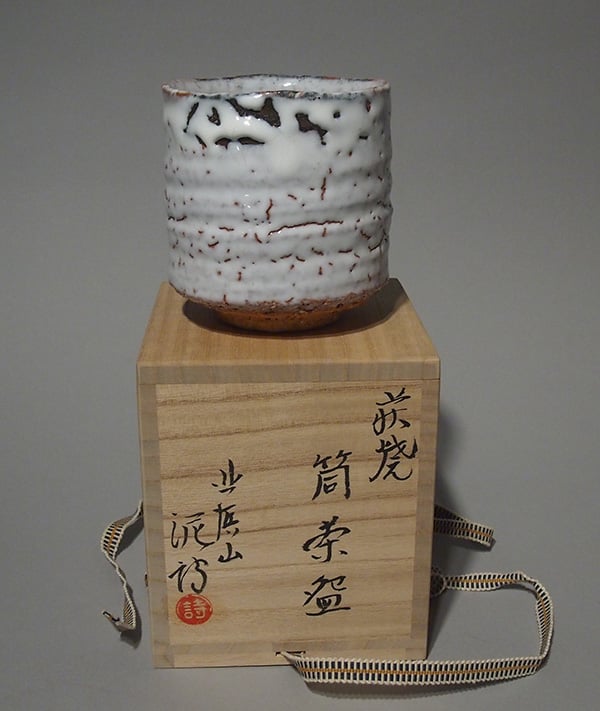 萩焼
筒茶盌
山
泥詩
詩